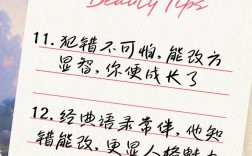 Beauty Tips
11. 犯错不可怕,能改方
显智,你便成长了
12. 经典语录常伴,他知
错能改,更显人格魅力